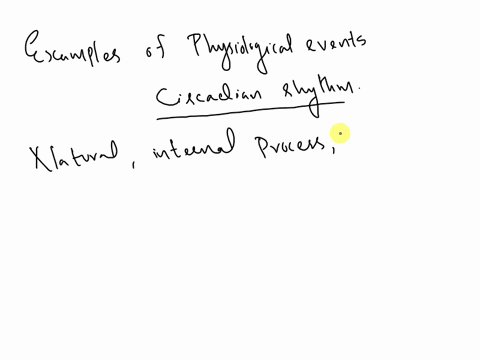 Examples of Physiological events
Circadian rhythm.
Natural, internal Process,